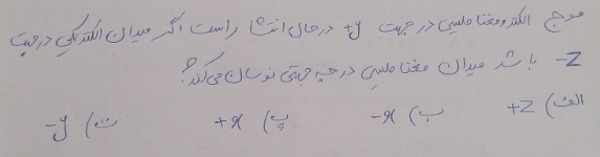 موج الکترومغناطیسی در جهت +y در حال انتشار است اگر میدان الکتریکی در جهت
-z باشد میدان مغناطیسی در چه جهتی نوسان می‌کند؟
الف) +z ب) -x پ) +x ت) -y